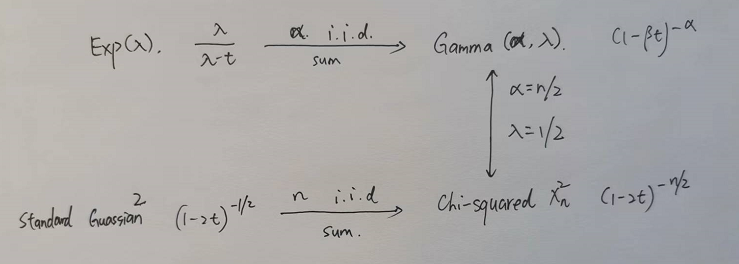 Exp(λ). λ/(λ-t) α. i.i.d. sum Gamma (α, λ). (1-βt)^{-α}
α=n/2
λ=1/2
Standard Guassian² (1-2t)^{-1/2} n i.i.d sum. Chi-squared X_n^2 (1-2t)^{-n/2}